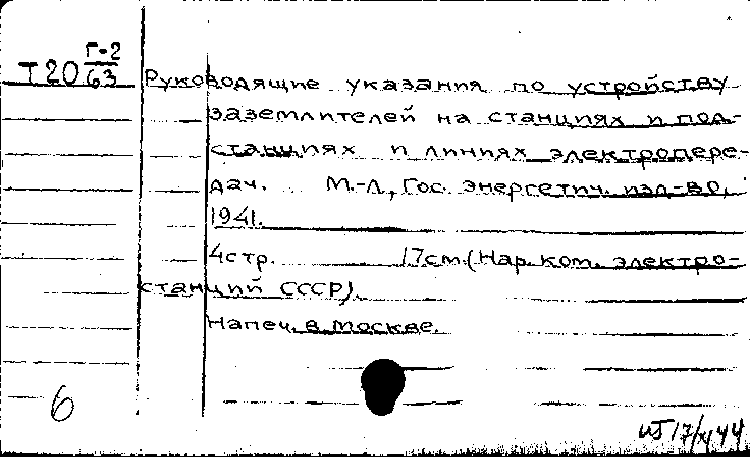 Г-2
Т20 63 Руководящие указания по устройству
заземлителей на станциях и под-
станциях и линиях электропере-
дач. М.-Л., Гос. энергетич. изд-во,
1941.
4стр. 17см.(Нар. ком. электро-
станций СССР).
Напеч. в Москве.
6
17/X 44